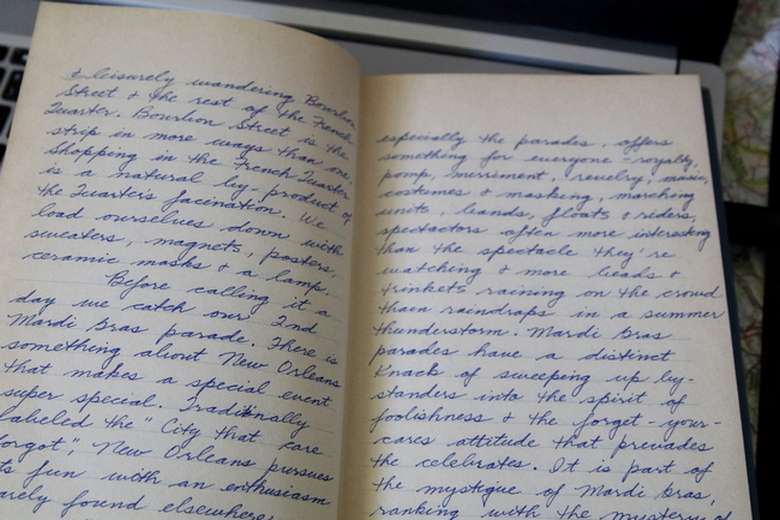 & leisurely wandering Bourbon
Street & the rest of the French
Quarter. Bourbon Street is the
strip in more ways than one.
Shopping in the French Quarter
is a natural by-product of
the Quarter's facination. We
load ourselves down with
sweaters, magnets, posters,
ceramic masks & a lamp.
Before calling it a
day we catch our 2nd
Mardi Gras parade. There is
something about New Orleans
that makes a special event
super special. Traditionally
labeled the "City that care
forgot", New Orleans pursues
its fun with an enthusiasm
rarely found elsewhere;
especially the parades, offers
something for everyone - royalty,
pomp, merriment, revelry, music,
costumes & masking, marching
units, bands, floats & riders,
spectactors often more interesting
than the spectacle they're
watching & more beads &
trinkets raining on the crowd
than raindrops in a summer
thunderstorm. Mardi Gras
parades have a distinct
knack of sweeping up by-
standers into the spirit of
foolishness & the forget-your-
cares attitude that prevades
the celebrates. It is part of
the mystique of Mardi Gras,
ranking with the mystery of